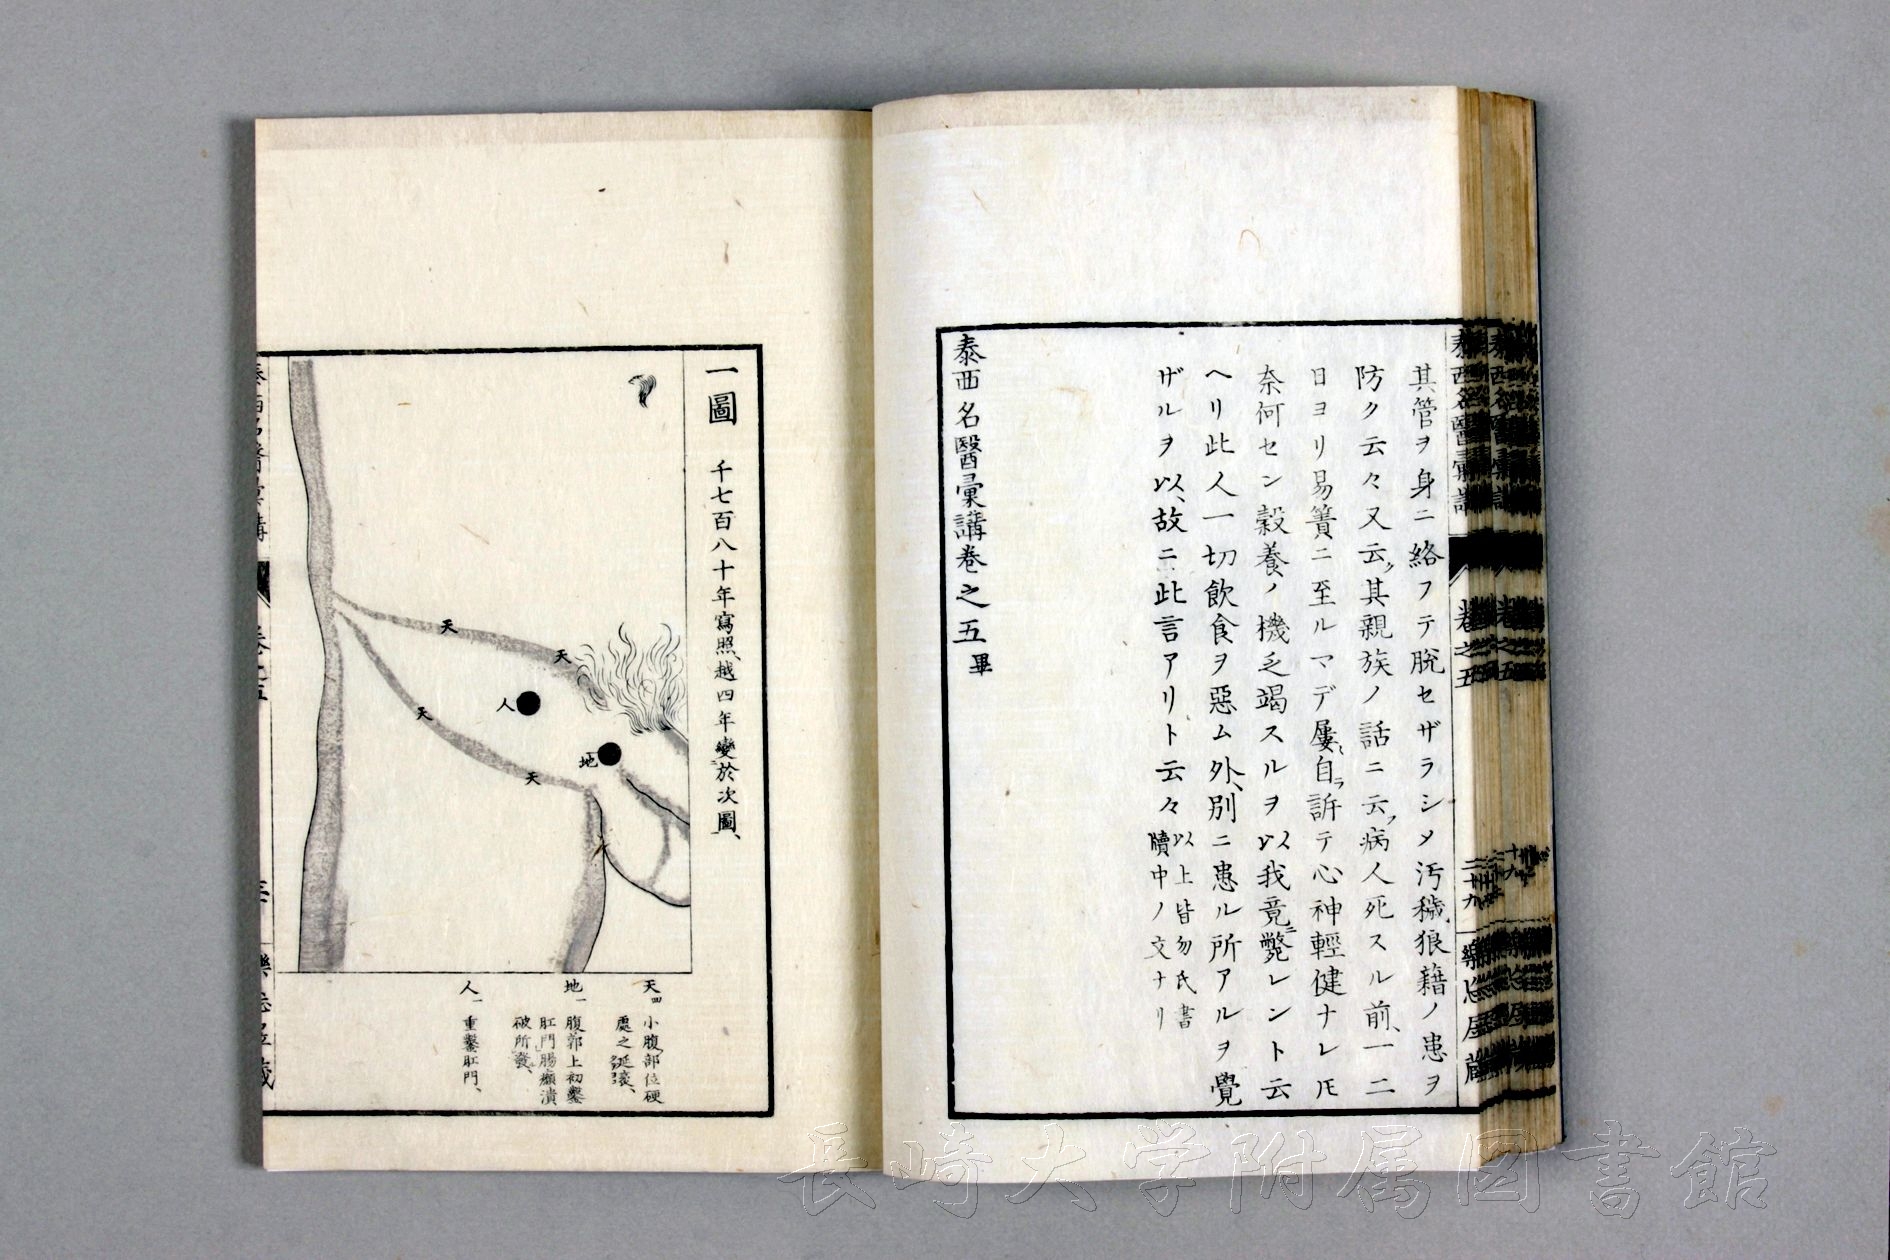 其管ヲ身ニ絡フテ脫セザラシメ汚穢狼藉ノ患ヲ
防ク云々又云フ其親族ノ話ニ云フ病人死スル前、一二
日ヨリ易簀ニ至ルマデ屢〻自ラ訴テ心神輕健ナレ𪜈
奈何セン穀養ノ機乏竭スルヲ以我竟ニ斃レント云
ヘリ此人一切飮食ヲ惡ム外、別ニ患ル所アルヲ覺
ザルヲ以、故ニ此言アリト云々
以上皆勿氏書
牘中ノ文ナリ
泰西名醫彙講卷之五畢
一圖 千七百八十年寫照、越四年變於次圖、
天
天
天
天
人
地
天四 小腹部位硬
處之延蔓、
地一 腹郭上初鑿
肛門腸癩潰
破所發、
人一 重鑿肛門、
泰西名醫彙講
卷之五
二十九
長崎大学附属図書館